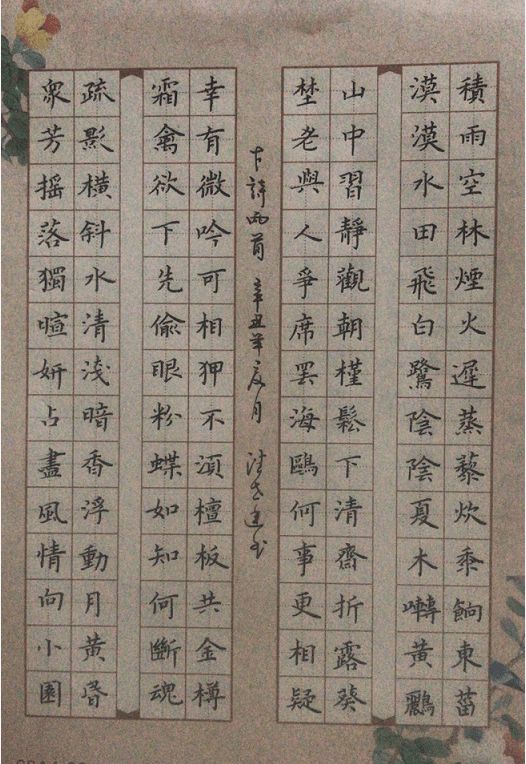 積雨空林煙火遲蒸藜炊黍餉東菑
漠漠水田飛白鷺陰陰夏木囀黃鸝
山中習靜觀朝槿鬆下清齋折露葵
埜老與人爭席罷海鷗何事更相疑
眾芳搖落獨暄妍占盡風情向小園
疏影橫斜水清淺暗香浮動月黃昏
霜禽欲下先偷眼粉蝶如知何斷魂
幸有微吟可相狎不須檀板共金樽
古詩兩首 辛丑年夏月